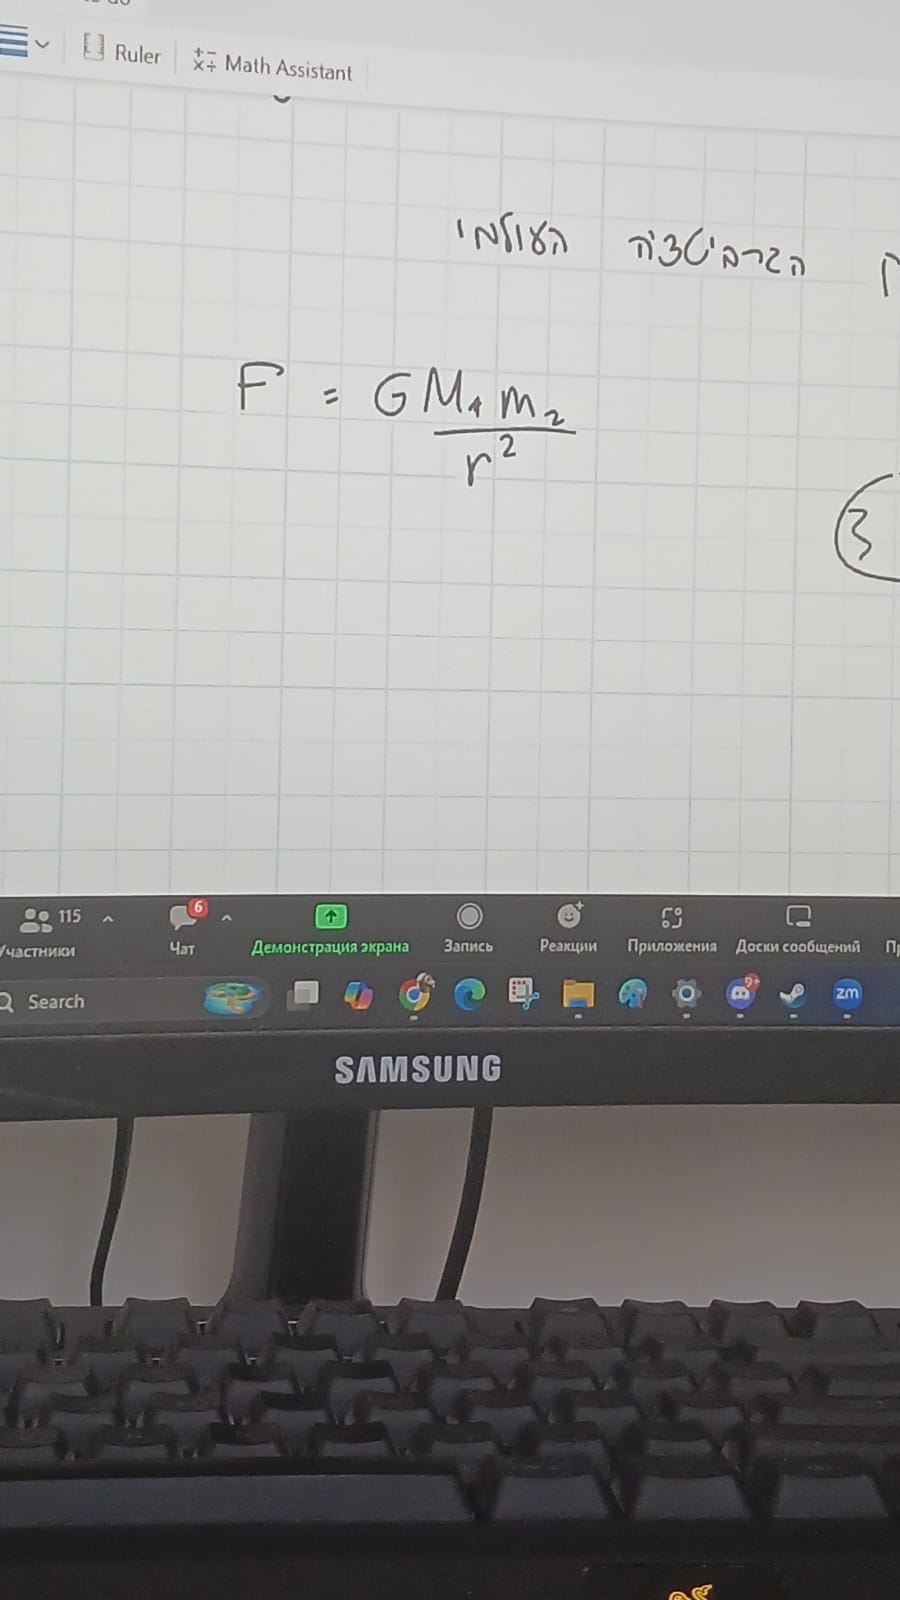 Ruler
Math Assistant
הגרביטציה העולמי
F = G M₁ m₂
r²
3
115
6
Участники
Чат
Демонстрация экрана
Запись
Реакции
Приложения
Доски сообщений
Search
9+
zm
SAMSUNG